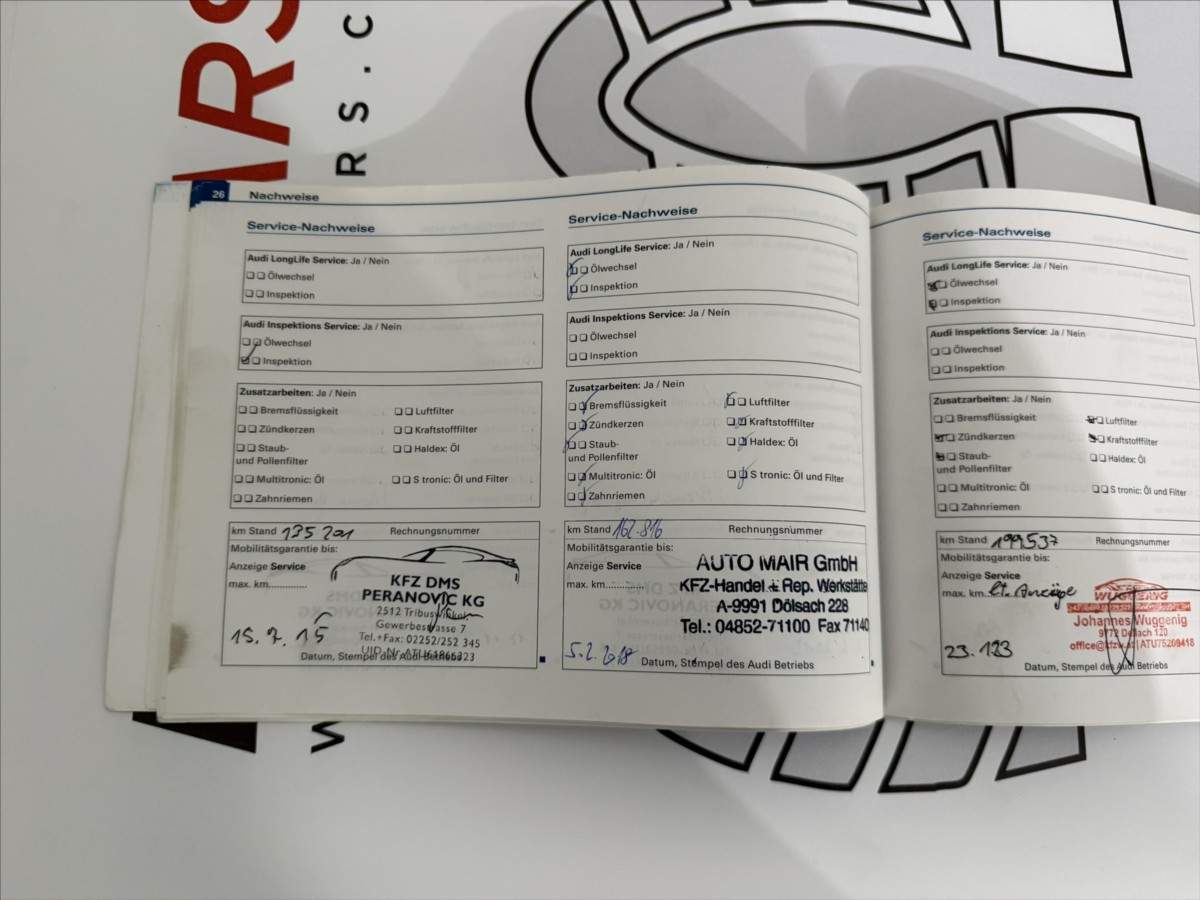 ARS
RS.C
26 Nachweise
Service-Nachweise
Audi LongLife Service: Ja / Nein
Ölwechsel
Inspektion
Audi Inspektions Service: Ja / Nein
Ölwechsel
Inspektion
Zusatzarbeiten: Ja / Nein
Bremsflüssigkeit Luftfilter
Zündkerzen Kraftstofffilter
Staub- Haldex: Öl
und Pollenfilter
Multitronic: Öl S tronic: Öl und Filter
Zahnriemen
km Stand 135 201 Rechnungsnummer
Mobilitätsgarantie bis:
Anzeige Service
max. km............
KFZ DMS
PERANOVIC KG
2512 Tribuswinkel
Gewerbestrasse 7
Tel.+Fax: 02252/252 345
15. 7. 15
Datum, Stempel des Audi Betriebs
Service-Nachweise
Audi LongLife Service: Ja / Nein
Ölwechsel
Inspektion
Audi Inspektions Service: Ja / Nein
Ölwechsel
Inspektion
Zusatzarbeiten: Ja / Nein
Bremsflüssigkeit Luftfilter
Zündkerzen Kraftstofffilter
Staub- Haldex: Öl
und Pollenfilter
Multitronic: Öl S tronic: Öl und Filter
Zahnriemen
km Stand 162.816 Rechnungsnummer
Mobilitätsgarantie bis:
Anzeige Service
max. km............
AUTO MAIR GmbH
KFZ-Handel + Rep. Werkstätte
A-9991 Dölsach 228
Tel.: 04852-71100 Fax 71140
5.2.2018
Datum, Stempel des Audi Betriebs
Service-Nachweise
Audi LongLife Service: Ja / Nein
Ölwechsel
Inspektion
Audi Inspektions Service: Ja / Nein
Ölwechsel
Inspektion
Zusatzarbeiten: Ja / Nein
Bremsflüssigkeit Luftfilter
Zündkerzen Kraftstofffilter
Staub- Haldex: Öl
und Pollenfilter
Multitronic: Öl S tronic: Öl und Filter
Zahnriemen
km Stand 199537 Rechnungsnummer
Mobilitätsgarantie bis:
Anzeige Service
max. km. lt. Anzeige
WUGGENIG
Johannes Wuggenig
9772 Dellach 120
office@kfzw.at | ATU75209418
23. 123
Datum, Stempel des Audi Betriebs
W